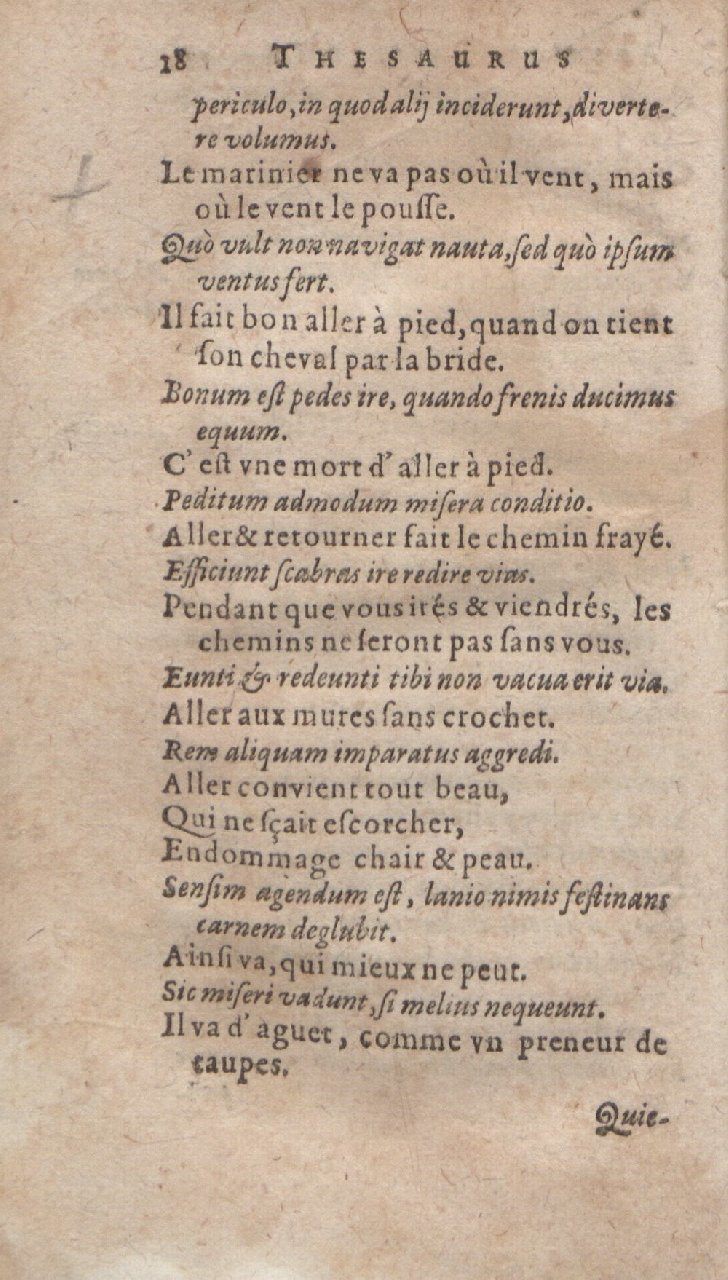 18 THESAURUS
periculo, in quod alij inciderunt, diverte-
re volumus.
Le marinier ne va pas où il vent, mais
où le vent le pouſſe.
Quò vult non navigat nauta, ſed quò ipſum
ventus fert.
Il fait bon aller à pied, quand on tient
ſon cheval par la bride.
Bonum eſt pedes ire, quando frenis ducimus
equum.
C' eſt vne mort d' aller à pied.
Peditum admodum miſera conditio.
Aller & retourner fait le chemin frayé.
Efficiunt ſcabras ire redire vias.
Pendant que vous irés & viendrés, les
chemins ne ſeront pas ſans vous.
Eunti & redeunti tibi non vacua erit via.
Aller aux mures ſans crochet.
Rem aliquam imparatus aggredi.
Aller convient tout beau,
Qui ne ſçait eſcorcher,
Endommage chair & peau.
Senſim agendum eſt, lanio nimis feſtinans
carnem deglubit.
Ainſi va, qui mieux ne peut.
Sic miſeri vadunt, ſi melius nequeunt.
Il va d' aguet, comme vn preneur de
taupes.
Quie-